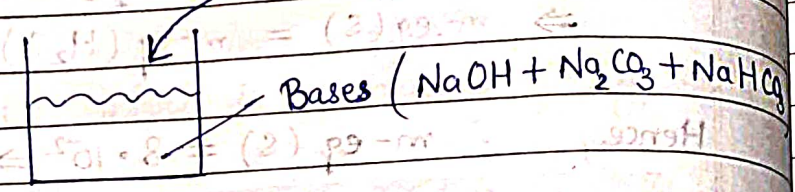 Bases (NaOH + Na₂CO₃ + NaHCO₃